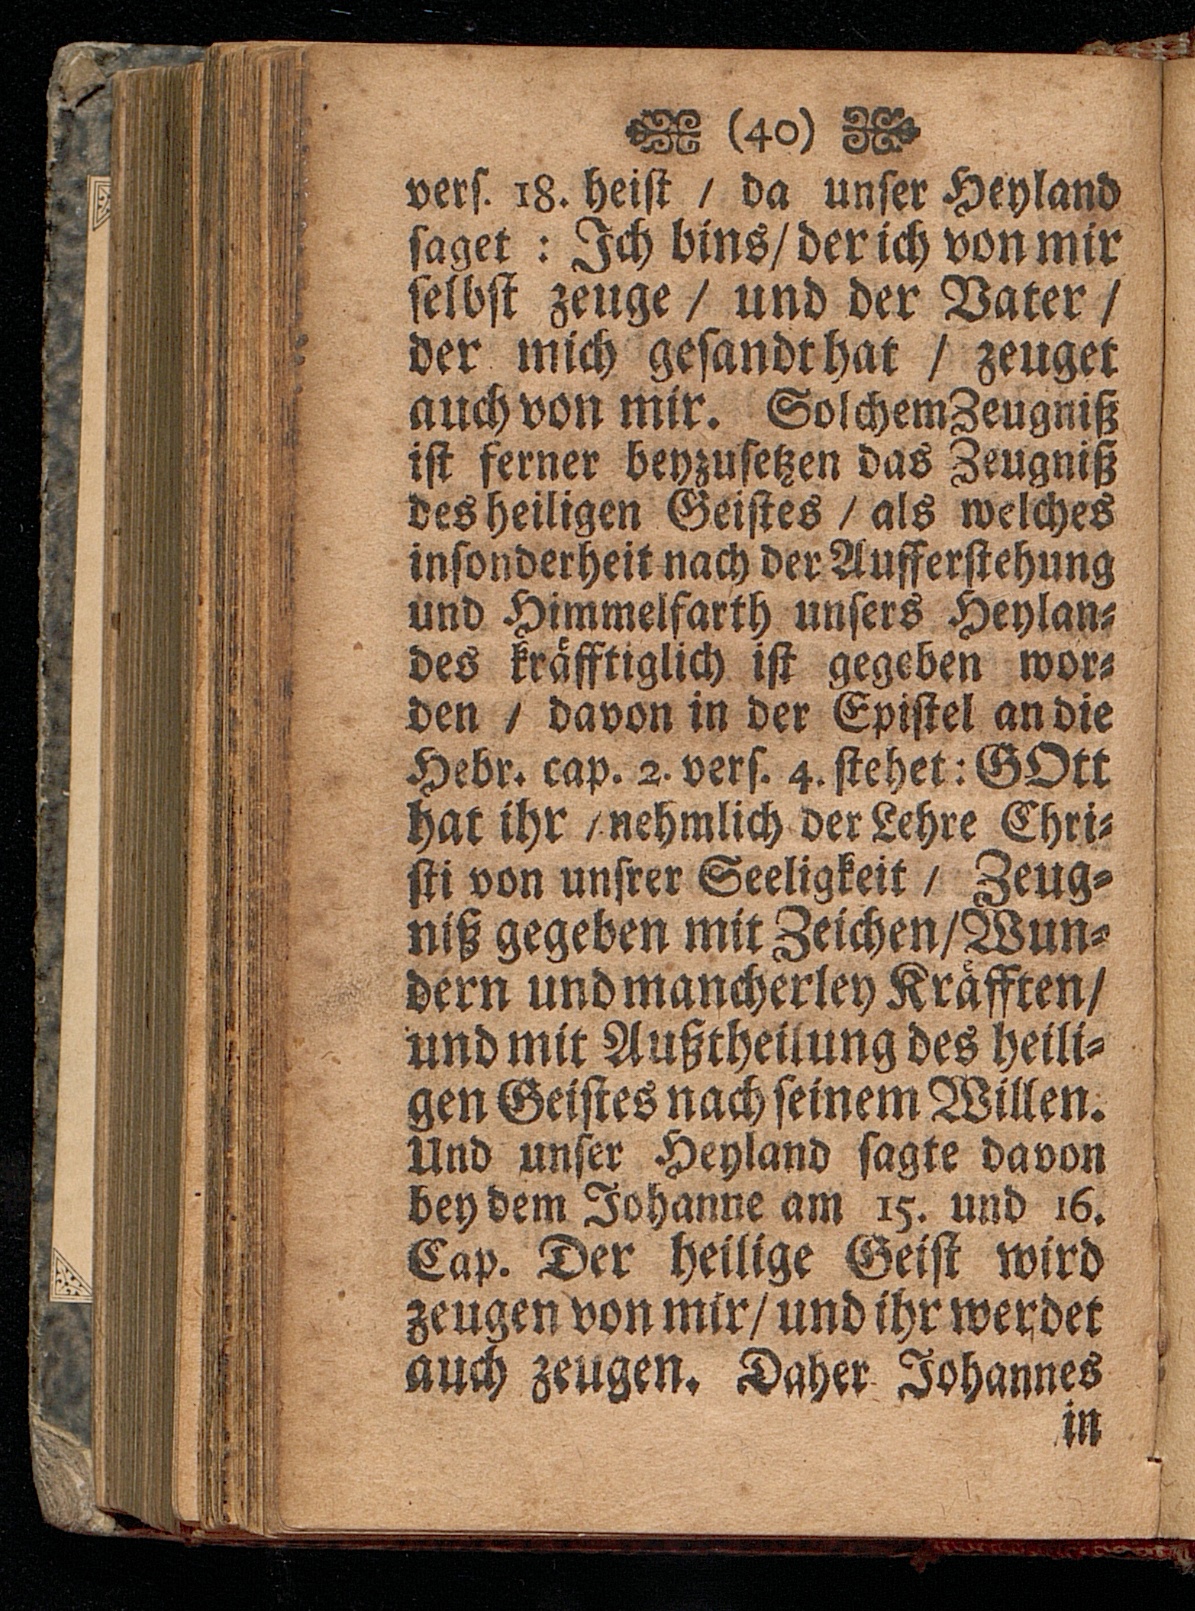 (40)
verſ. 18. heiſt / da unſer Heyland
ſaget : Ich bins / der ich von mir
ſelbſt zeuge / und der Vater /
der mich geſandt hat / zeuget
auch von mir. Solchem Zeugniß
iſt ferner beyzuſetzen das Zeugniß
des heiligen Geiſtes / als welches
inſonderheit nach der Aufferſtehung
und Himmelfarth unſers Heylan⸗
des kräfftiglich iſt gegeben wor⸗
den / davon in der Epiſtel an die
Hebr. cap. 2. verſ. 4. ſtehet: GOtt
hat ihr / nehmlich der Lehre Chri⸗
ſti von unſrer Seeligkeit / Zeug⸗
niß gegeben mit Zeichen / Wun⸗
dern und mancherley Kräfften /
und mit Außtheilung des heili⸗
gen Geiſtes nach ſeinem Willen.
Und unſer Heyland ſagte davon
bey dem Johanne am 15. und 16.
Cap. Der heilige Geiſt wird
zeugen von mir / und ihr werdet
auch zeugen. Daher Johannes
in